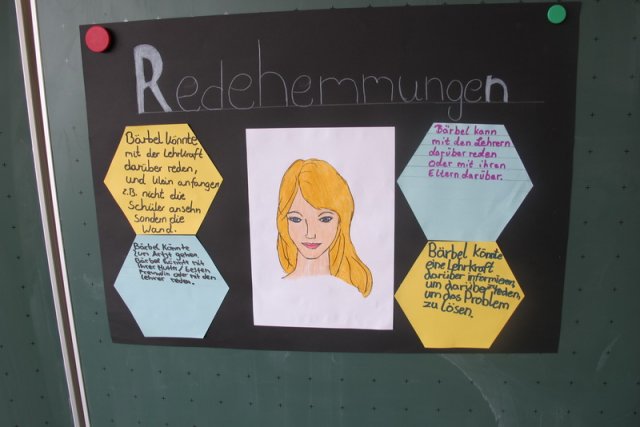 Redehemmungen
Bärbel könnte
mit der Lehrkraft
darüber reden,
und klein anfangen
z.B. nicht die
Schüler ansehn
sondern die
Wand.
Bärbel könnte
zum Arzt gehen
Bärbel könnte mit
ihrer Mutter/besten
Freundin oder mit den
Lehrner reden.
Bärbel kann
mit den Lehrern
darüber reden
Oder mit ihren
Eltern darüber.
Bärbel könnte
eine Lehrkraft
darüber informieren,
um darüber reden,
um das Problem
zu lösen.